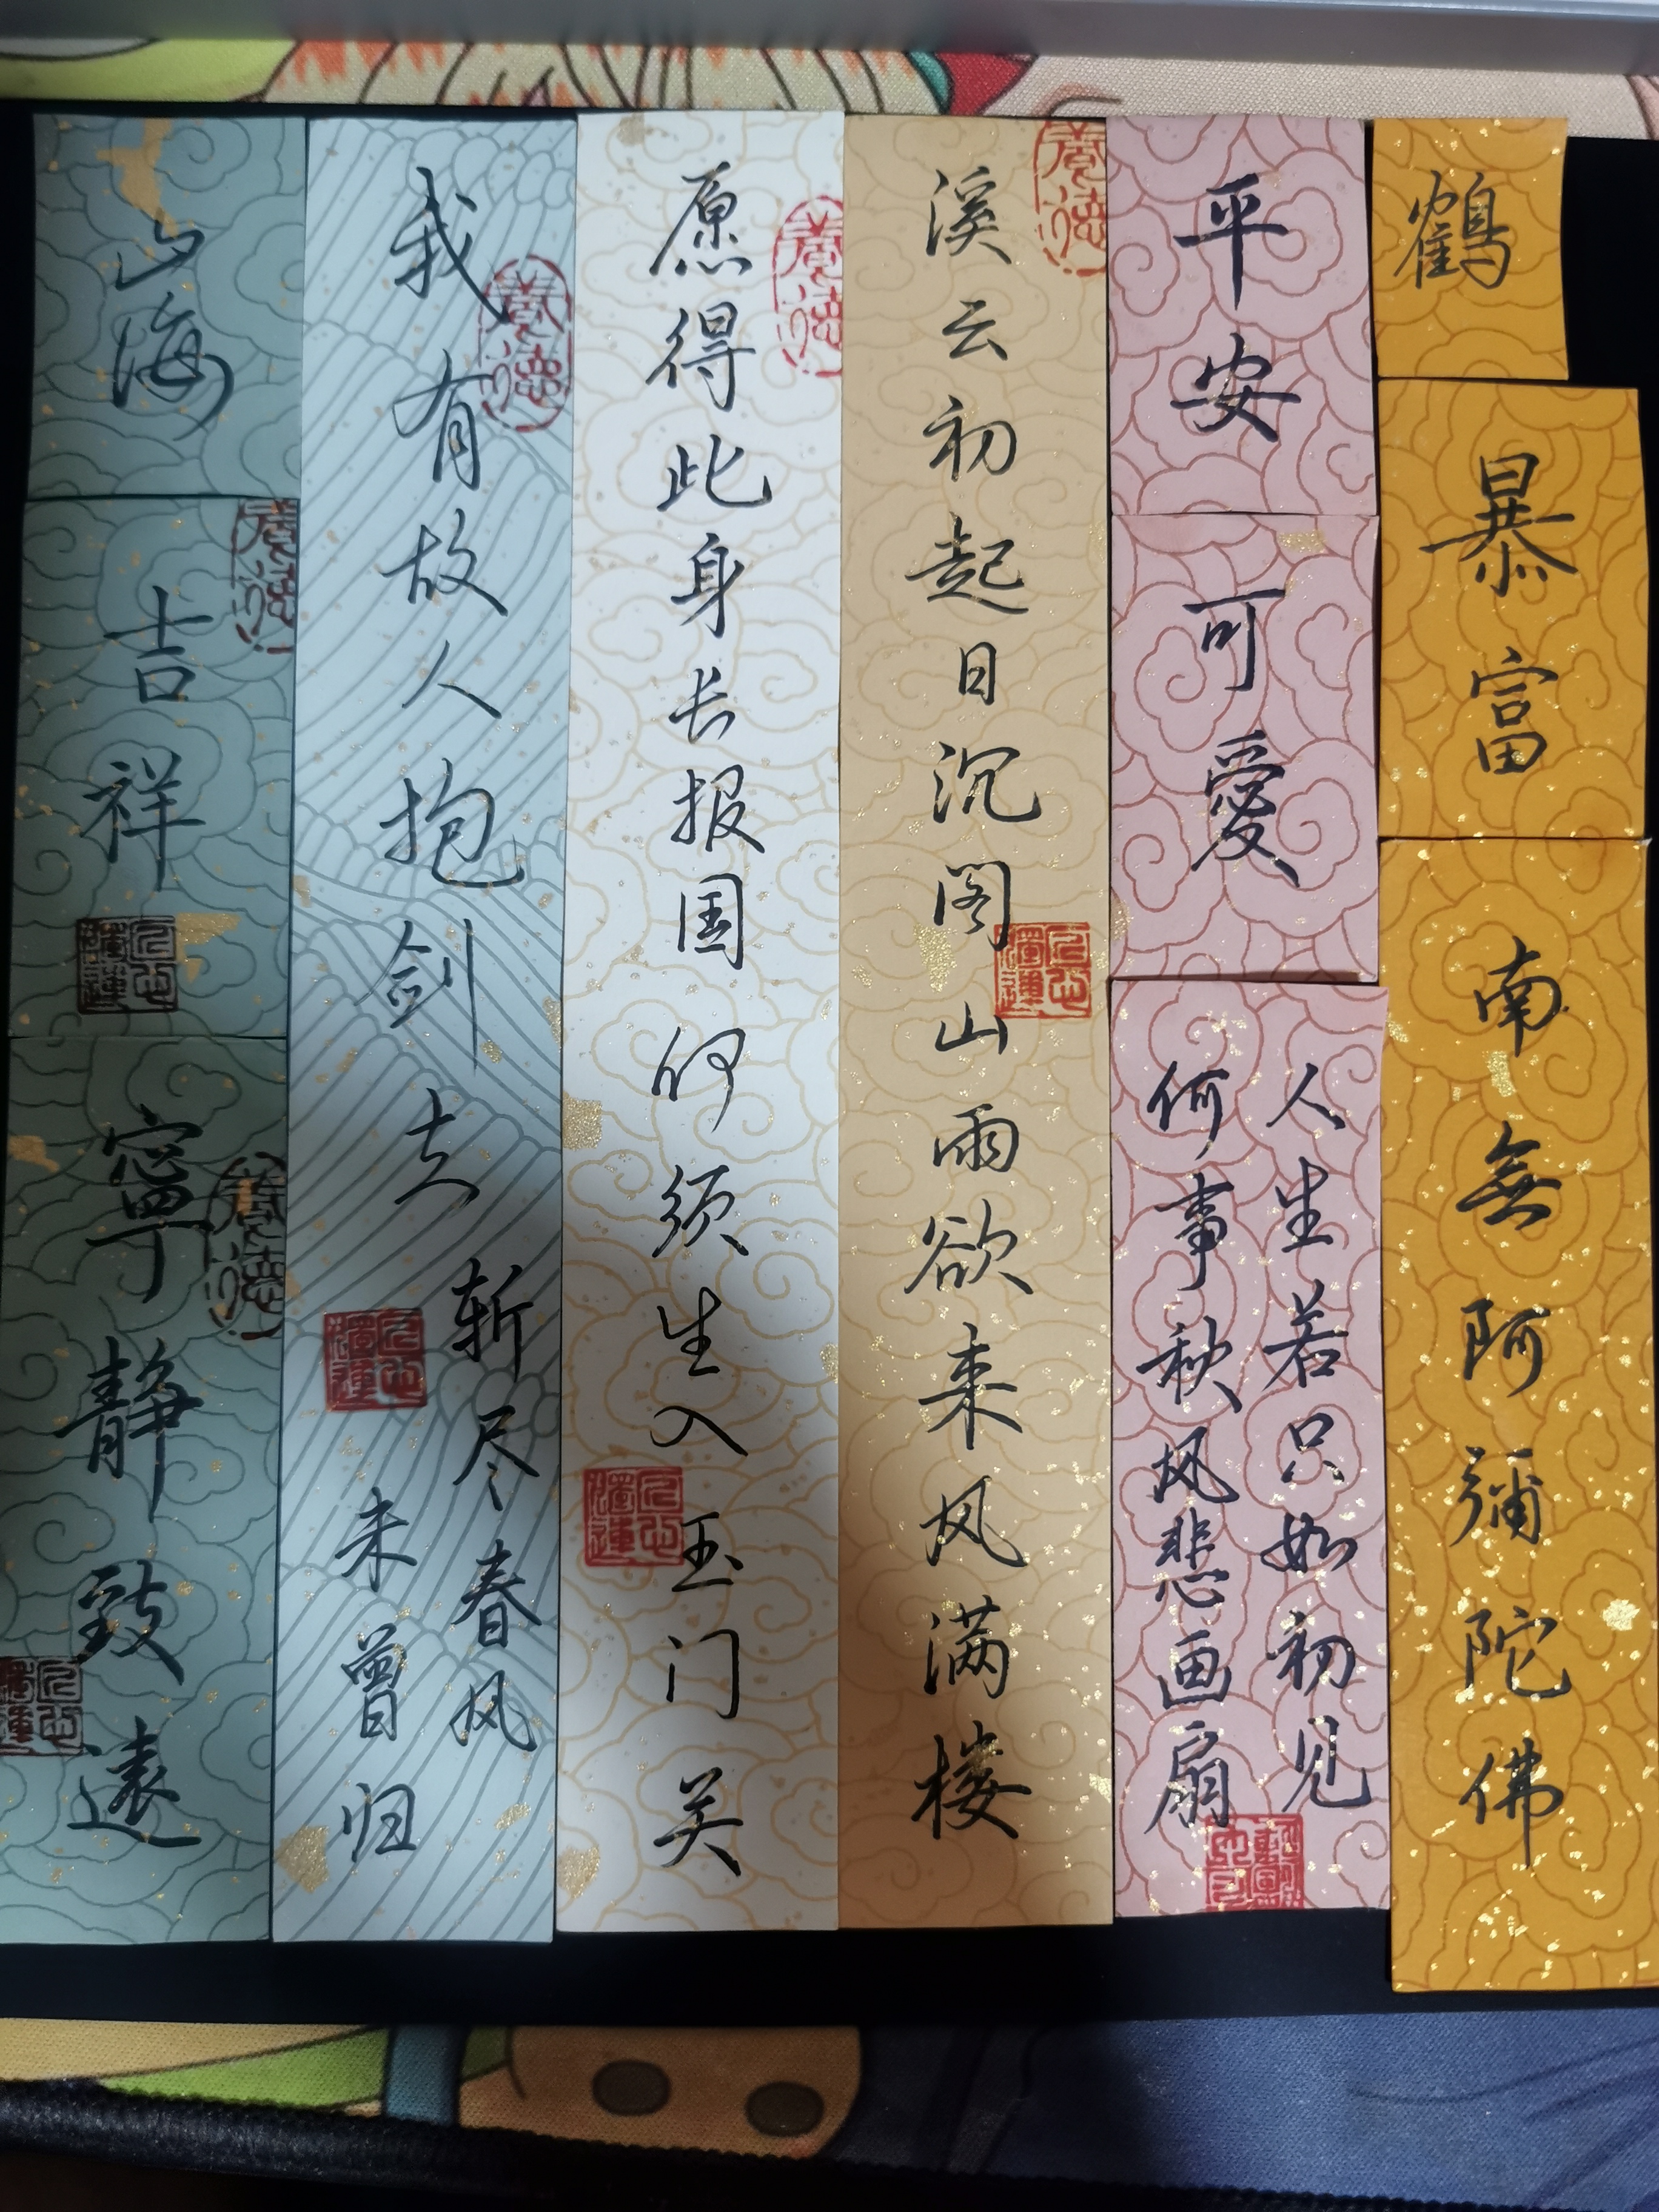 鶴
暴富
南無阿彌陀佛
平安
可愛
人生若只如初见
何事秋风悲画扇
溪云初起日沉阁山雨欲来风满楼
愿得此身长报国何须生入玉门关
我有故人抱剑去
斩尽春风
未曾归
山海
吉祥
寧静致遠
養德
養德
養德
養德
養德